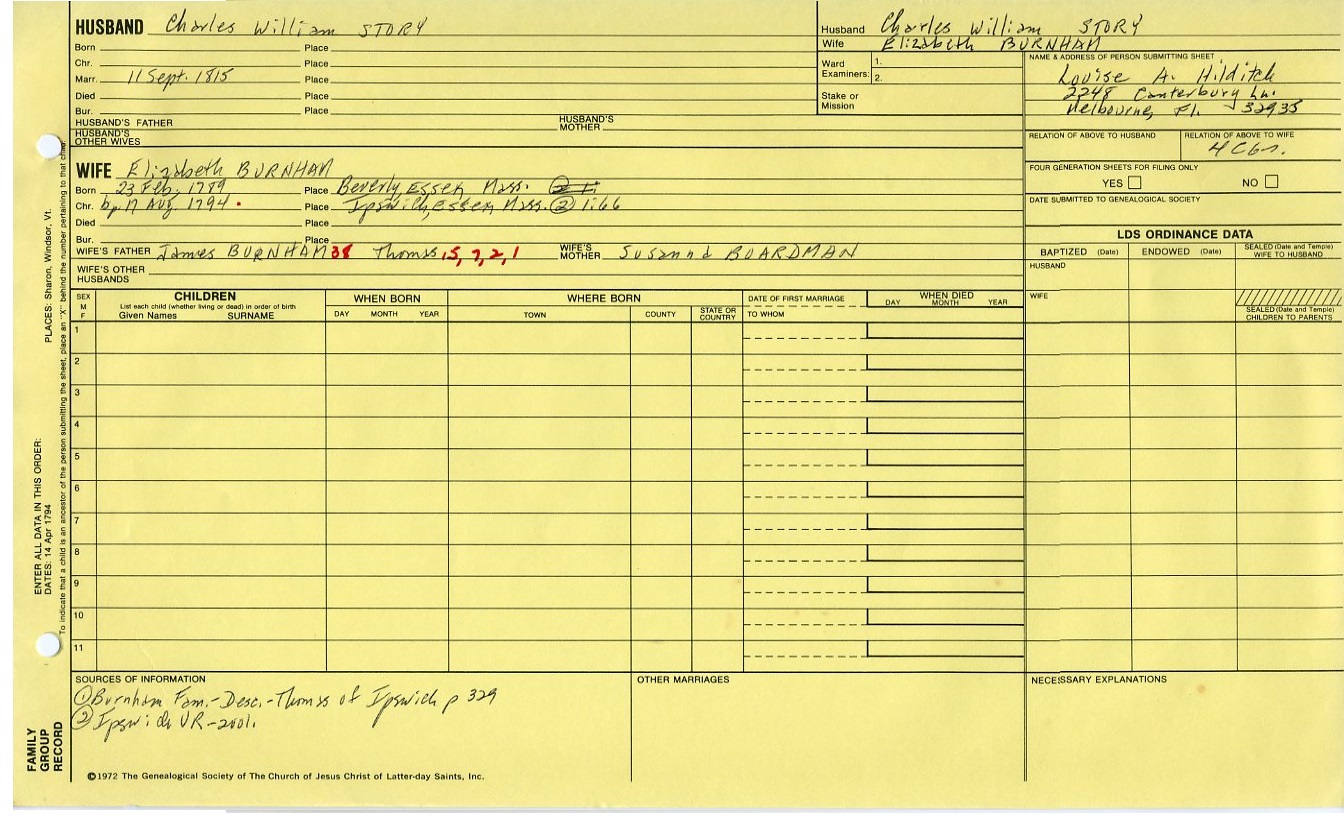 HUSBAND Charles William STORY
Born Place
Chr. Place
Marr. 11 Sept. 1815 Place
Died Place
Bur. Place
HUSBAND'S FATHER HUSBAND'S MOTHER
HUSBAND'S OTHER WIVES
Husband Charles William STORY
Wife Elizabeth BURNHAM
Ward Examiners: 1.
2.
Stake or Mission
NAME & ADDRESS OF PERSON SUBMITTING SHEET
Louise A. Hilditch
2248 Canterbury Ln.
Melbourne, Fl. 32935
RELATION OF ABOVE TO HUSBAND RELATION OF ABOVE TO WIFE
4C6r.
FOUR GENERATION SHEETS FOR FILING ONLY
YES NO
DATE SUBMITTED TO GENEALOGICAL SOCIETY
WIFE Elizabeth BURNHAM
Born 23 Feb. 1789 Place Beverly, Essex Mass.
Chr. bp 17 Aug. 1794 Place Ipswich, Essex Mass. ② 1:66
Died Place
Bur. Place
WIFE'S FATHER James BURNHAM 38 Thomas 15, 7, 2, 1 WIFE'S MOTHER Susanna BOARDMAN
WIFE'S OTHER HUSBANDS
LDS ORDINANCE DATA
BAPTIZED (Date) ENDOWED (Date) SEALED (Date and Temple) WIFE TO HUSBAND
HUSBAND
WIFE
SEALED (Date and Temple) CHILDREN TO PARENTS
SEX M F
CHILDREN
List each child (whether living or dead) in order of birth
Given Names SURNAME
WHEN BORN
DAY MONTH YEAR
WHERE BORN
TOWN COUNTY STATE OR COUNTRY
DATE OF FIRST MARRIAGE
TO WHOM
WHEN DIED
DAY MONTH YEAR
1
2
3
4
5
6
7
8
9
10
11
SOURCES OF INFORMATION
① Burnham Fam.-Desc.-Thomas of Ipswich p 329
② Ipswich VR-2001.
OTHER MARRIAGES
NECESSARY EXPLANATIONS
©1972 The Genealogical Society of The Church of Jesus Christ of Latter-day Saints, Inc.
FAMILY GROUP RECORD
ENTER ALL DATA IN THIS ORDER:
DATES: 14 Apr 1794 PLACES: Sharon, Windsor, Vt.
To indicate that a child is an ancestor of the person submitting the sheet, place an "X" behind the number pertaining to that child.